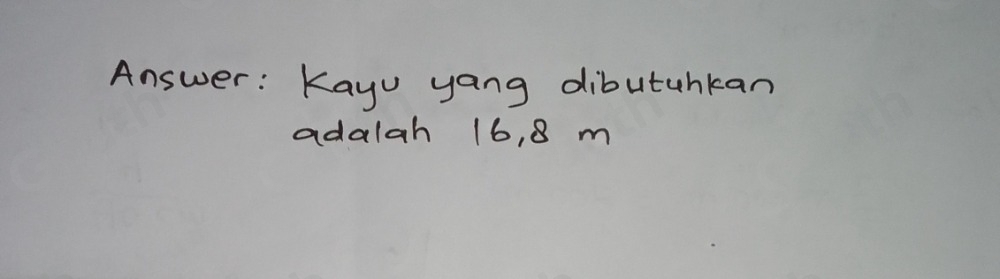 Answer: Kayu yang dibutuhkan
adalah 16,8 m